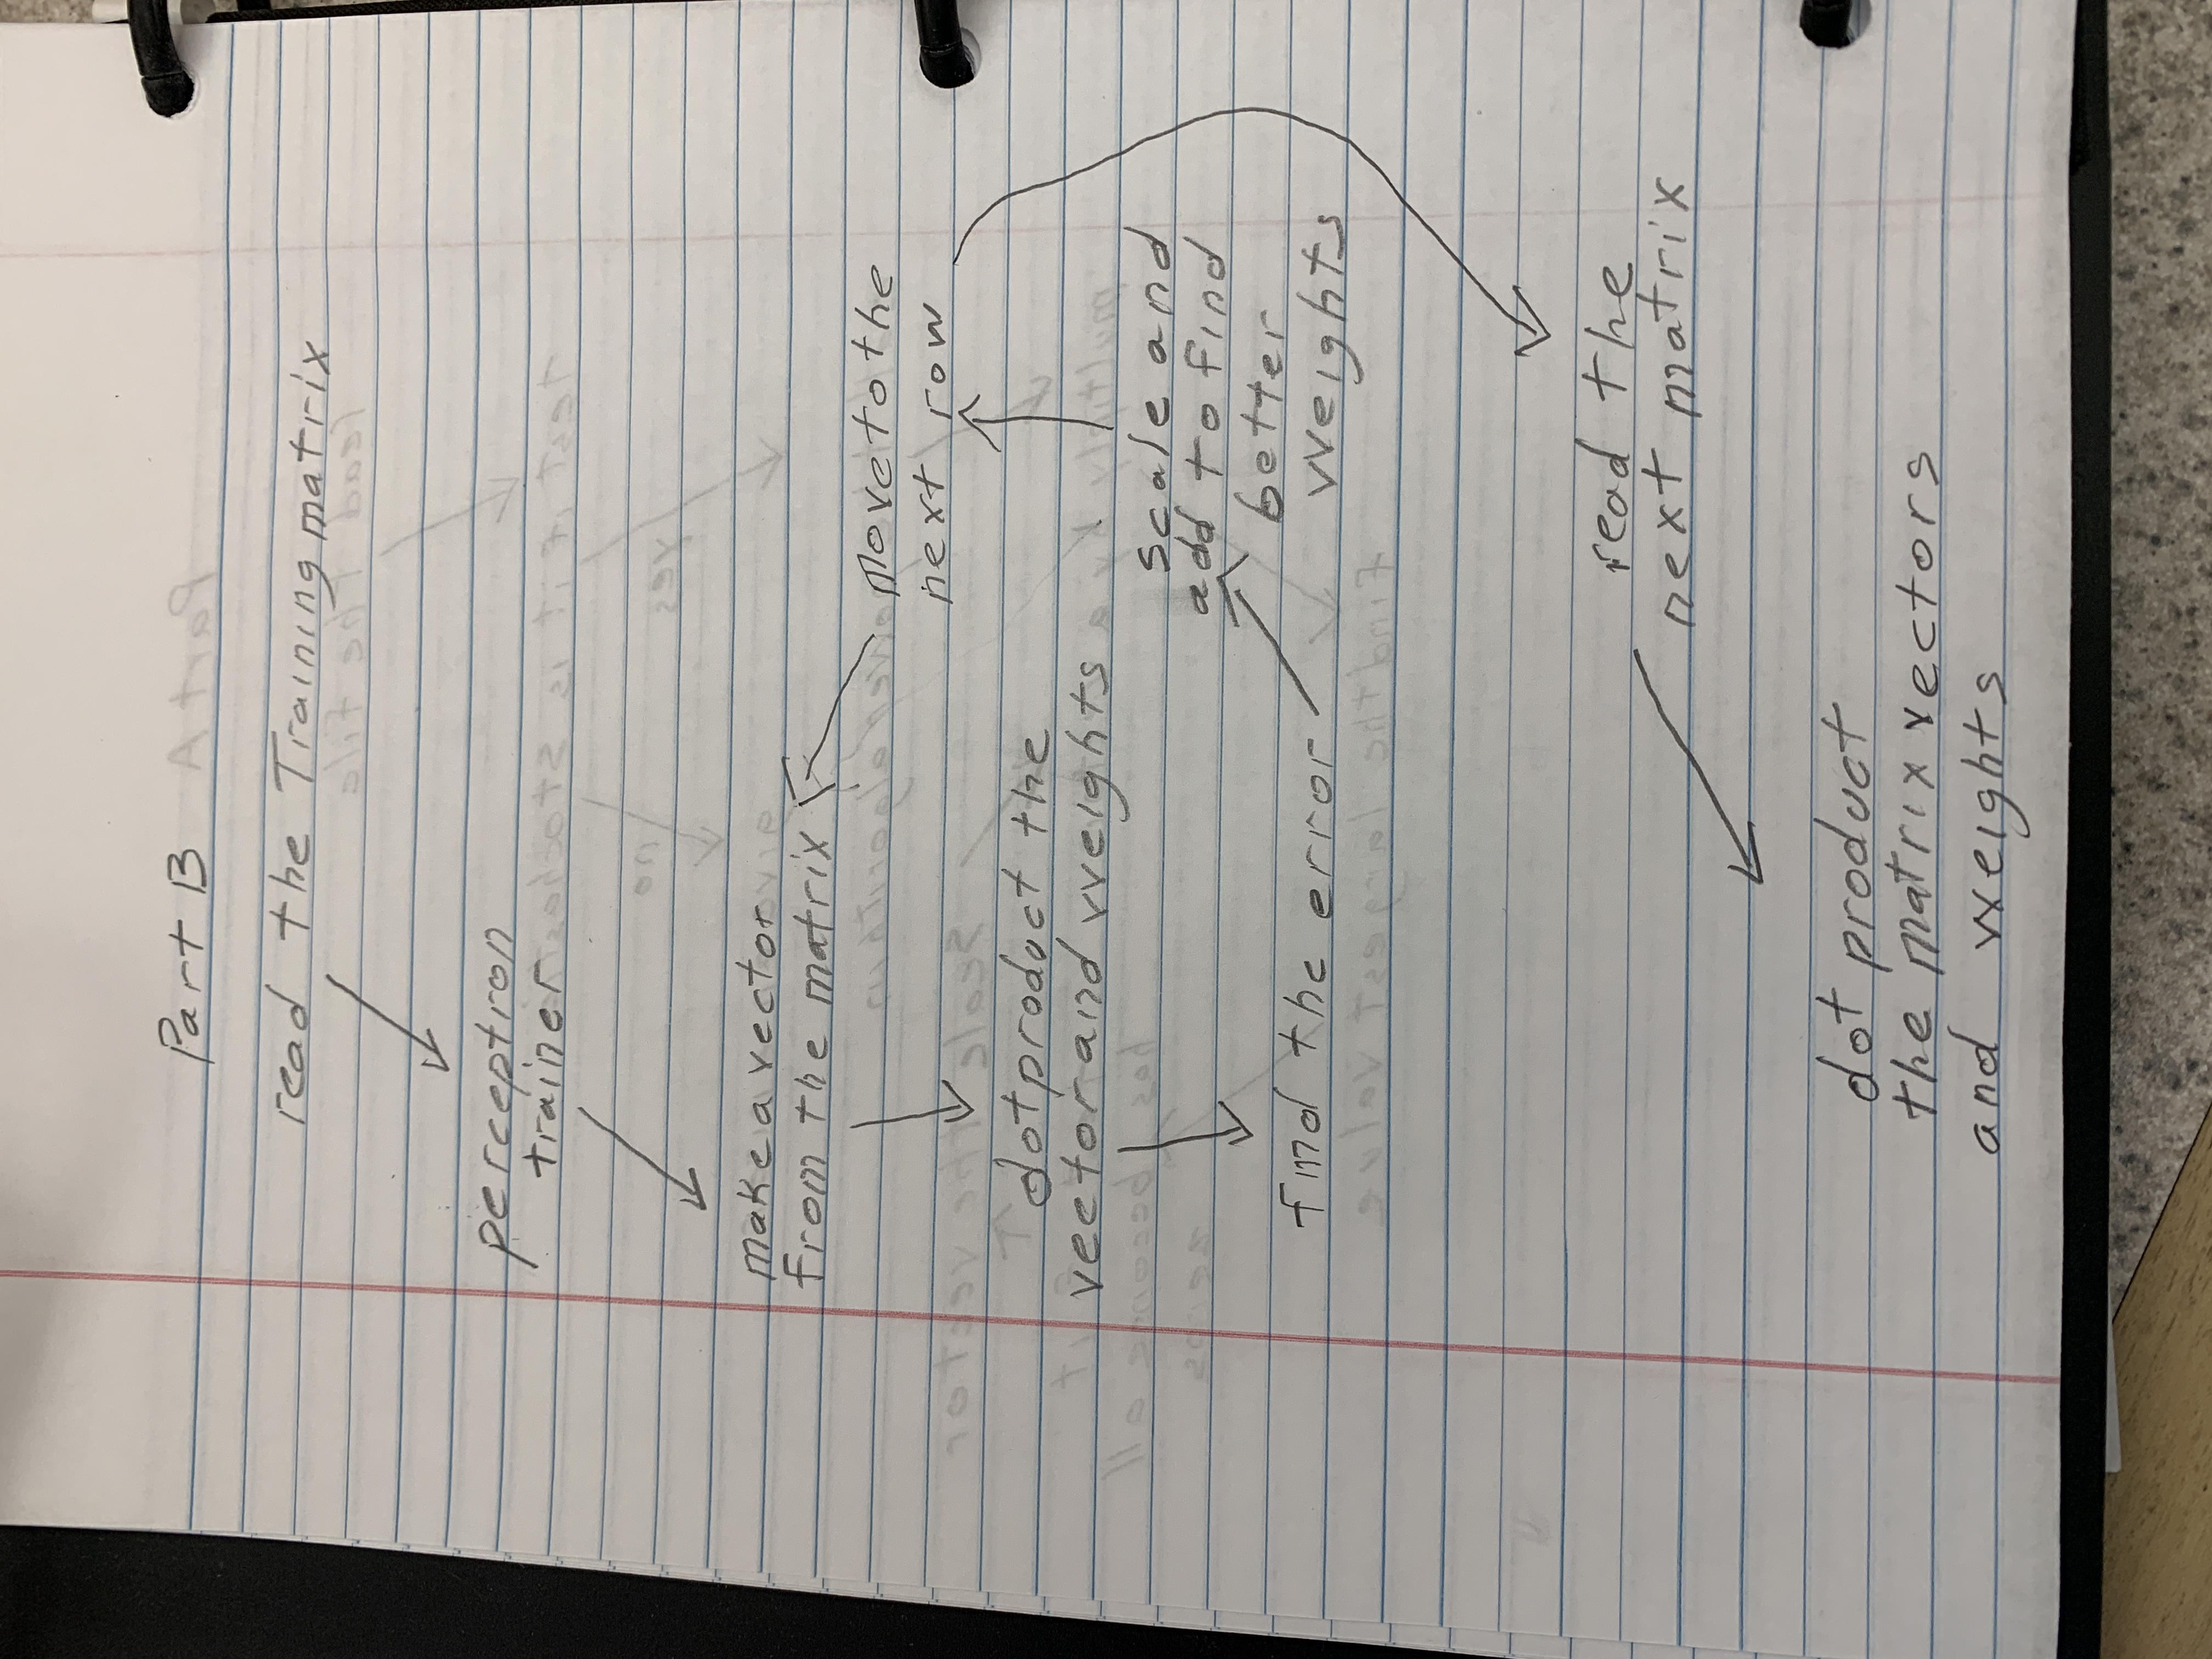 Part B
read the Training matrix
perceptron
trainer
make a vector
from the matrix
move to the
next row
dot product the
vector and weights
scale and
add to find
better
weights
find the error
read the
next matrix
dot product
the matrix vectors
and weights